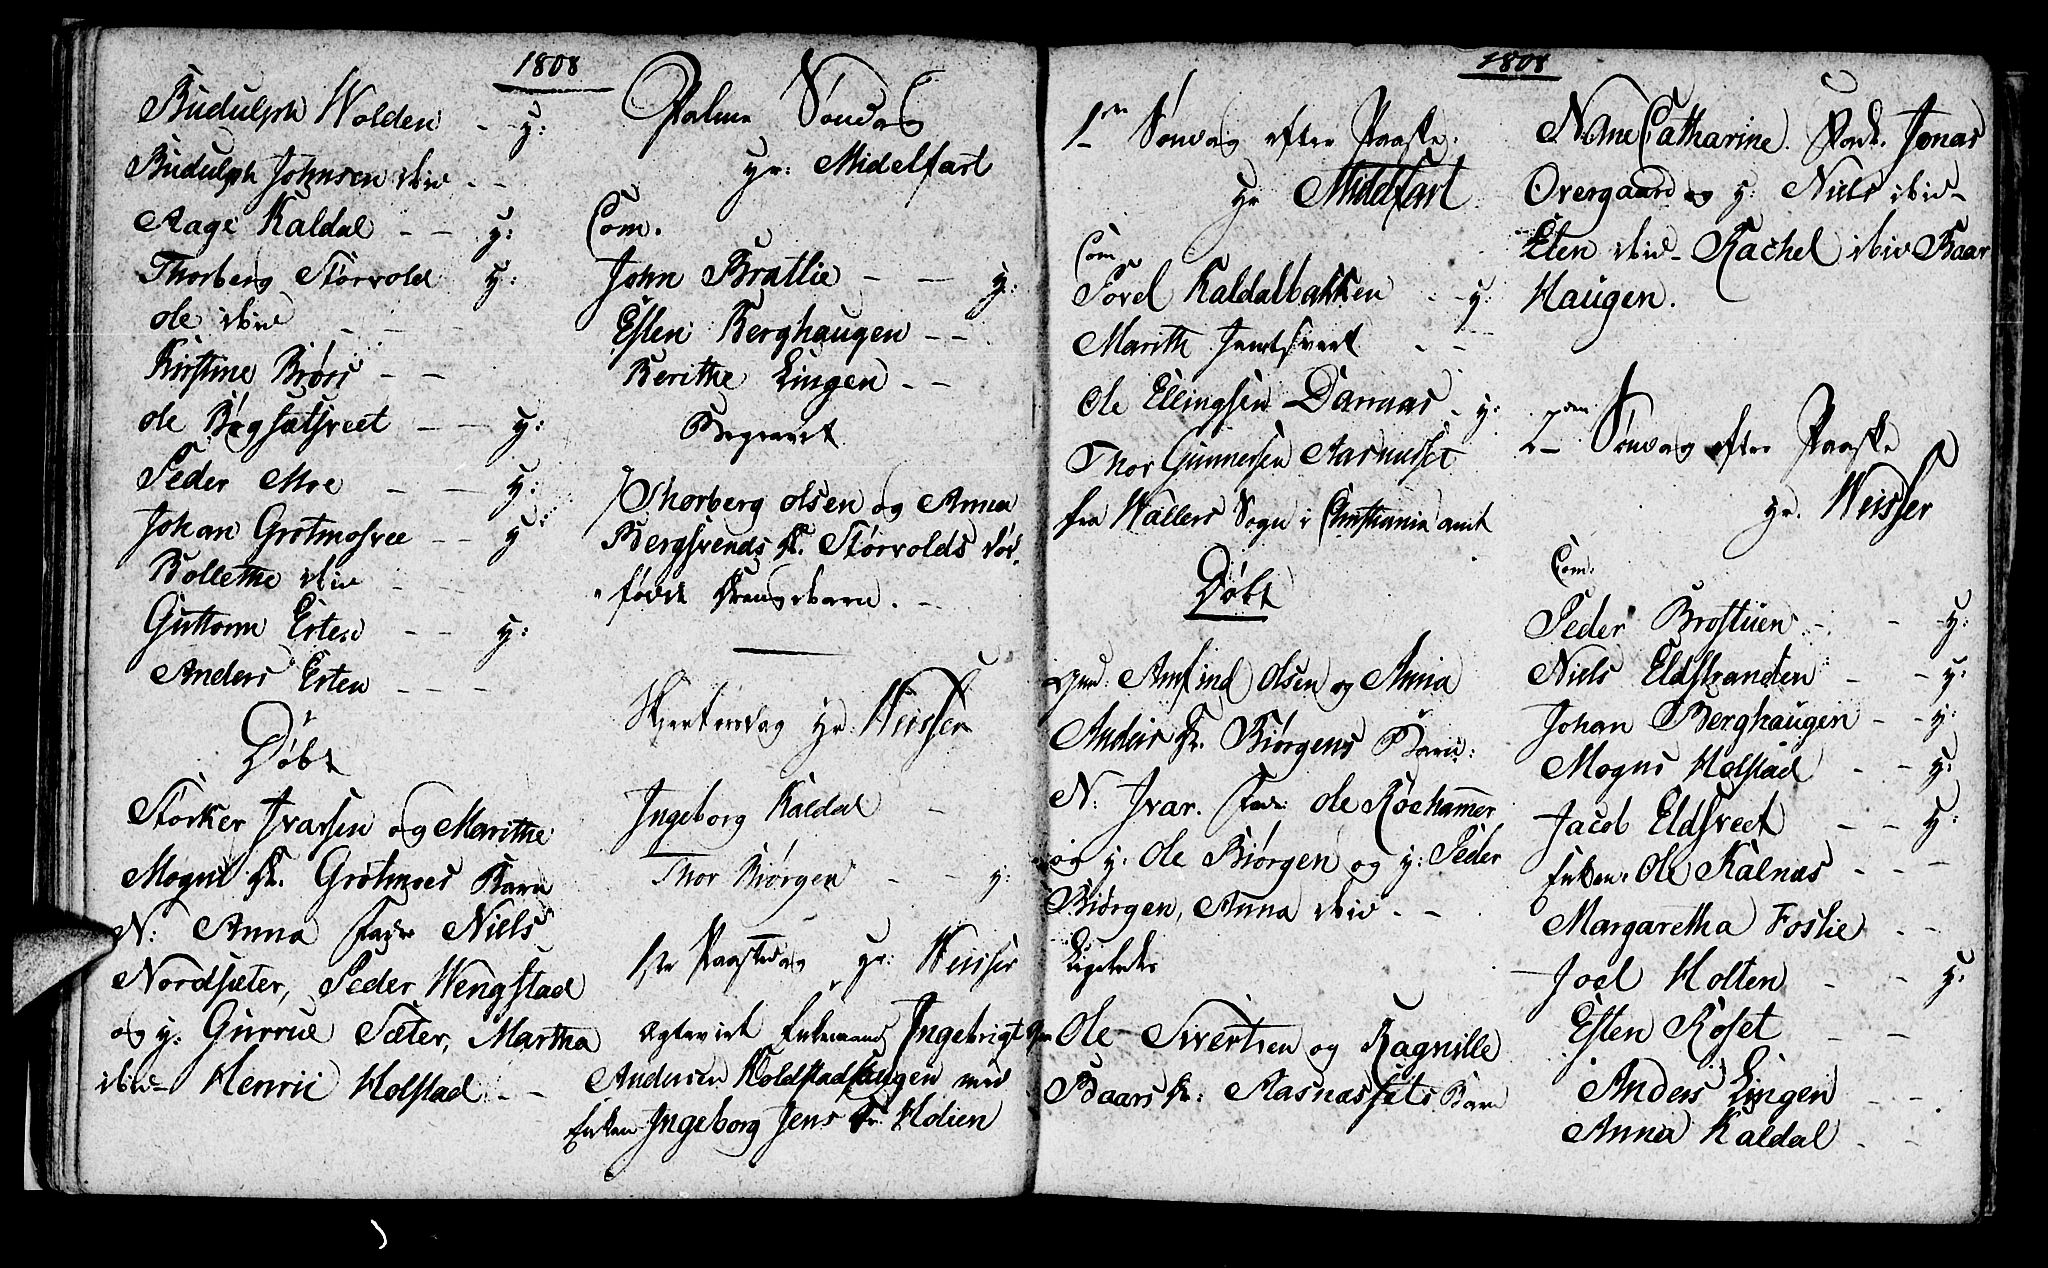 1808
Budulph Wolden - - y:
Budulph Johnsen ibid - -
Aage Kaldal - - y:
Thorberg Størvold y:
ole ibid - -
Kirstine Brøss - -
ole Bøgsætsveet - - y:
Peder Moe - - y:
Johan Grøtmosvee - - y
Bollethe ibid - -
Guttorm Esten - - y:
Anders Esten - - -
Døbt
Størker Ivarsen og Marithe
Mogns K. Grøtmoes Barn
N: Anna Fadr Niels
Nordsæter, Peder Wengstad
og y: Gurrue Sæter, Martha
ibid- Henric Holstad - -
Palme Søndag
Hr: Midelfart
Com.
John Brattie - - y:
Esten Berghaugen - -
Berithe Lingen - -
Begravet
Thorberg olsen og Anna
Bergsvends K. Størvolds død-
fødte Drengebarn. -
Skiertorsdag Hr: Weisser
Ingeborg Kaldal -
Thor Biørgen - - y:
1ste Paaskedag Hr: Weisser
Egteviet Enkemand Ingebrigt
Andersen Holdstadhaugen med
Enken Ingeborg Jens D. Holien
1808
1ste Søndag efter Paaske.
Hr Midelfart
Com
Forel Kaldalbakken - - y:
Marith Jemtsveet - -
ole Ellingsen Darnas - y:
Thor Gunnersen Aarnusset
fra Wallers Sogn i Christiania amt
Døbt
Arnfind Olsen og Anna
Anders K. Biørgens Barn:
N: Ivar. Fadr: Ole Røehamer
og y: Ole Biørgen og y: Peder
Biørgen, Anna ibid - -
Ligeledes
Ole Sivertsen og Ragnille
Baars K: Aasnassets Barn
N: Ane Catharine. Fadr. Jonas
Overgaard og y: Niels ibid-
Esten ibid- Rachel ibid Baar
Haugen.
2den Søndag efter Paaske
Hr. Weisser
Com.
Peder Brostuen - - y:
Niels Eldstranden - - y:
Johan Berghaugen - - y:
Mogns Holstad - - y:
Jacob Eldsveet - - y:
Enken. Ole Kalnæs - -
Margaretha Foslie - -
Joel Holten - - y:
Esten Røset - -
Anders Lingen - -
Anna Kaldal - -